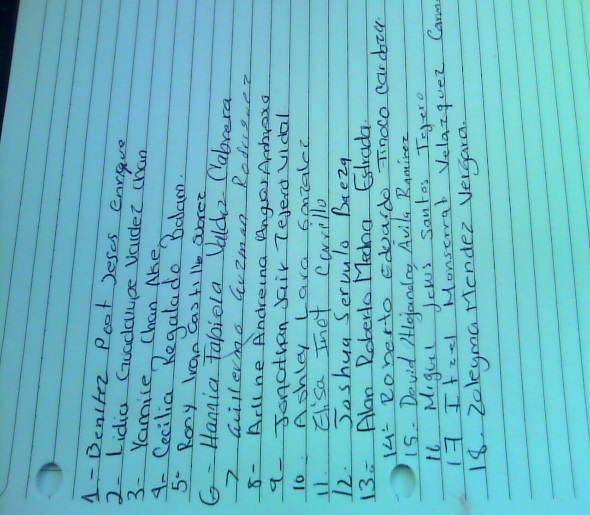 1- Benitez Poot Jesus Enrique
2- Lidia Guadalupe Valdez Chan
3- Yamile Chan Ake
4- Cecilia Regalado Balam.
5- Rony Ivan Castillo
6- Hannia Fabiola Valdez Cabrera
7 Guillermo Guzman Rodriguez
8- Andreina Ambrosio
9- Jonathan Jair Tejero Vidal
10- Ashley Lara Gonzalez
11. Elisa Carrillo
12. Joshua Servulo Baeza
13- Alan Roberto Medina Estrada.
14- Roberto Eduardo Tinoco Cardoza.
15- David Alejandro Avila Ramirez
16 Miguel Jesus Santos Tejero
17 Itzel Monserrat Velazquez
18. Zuleyma Mendez Vergara.